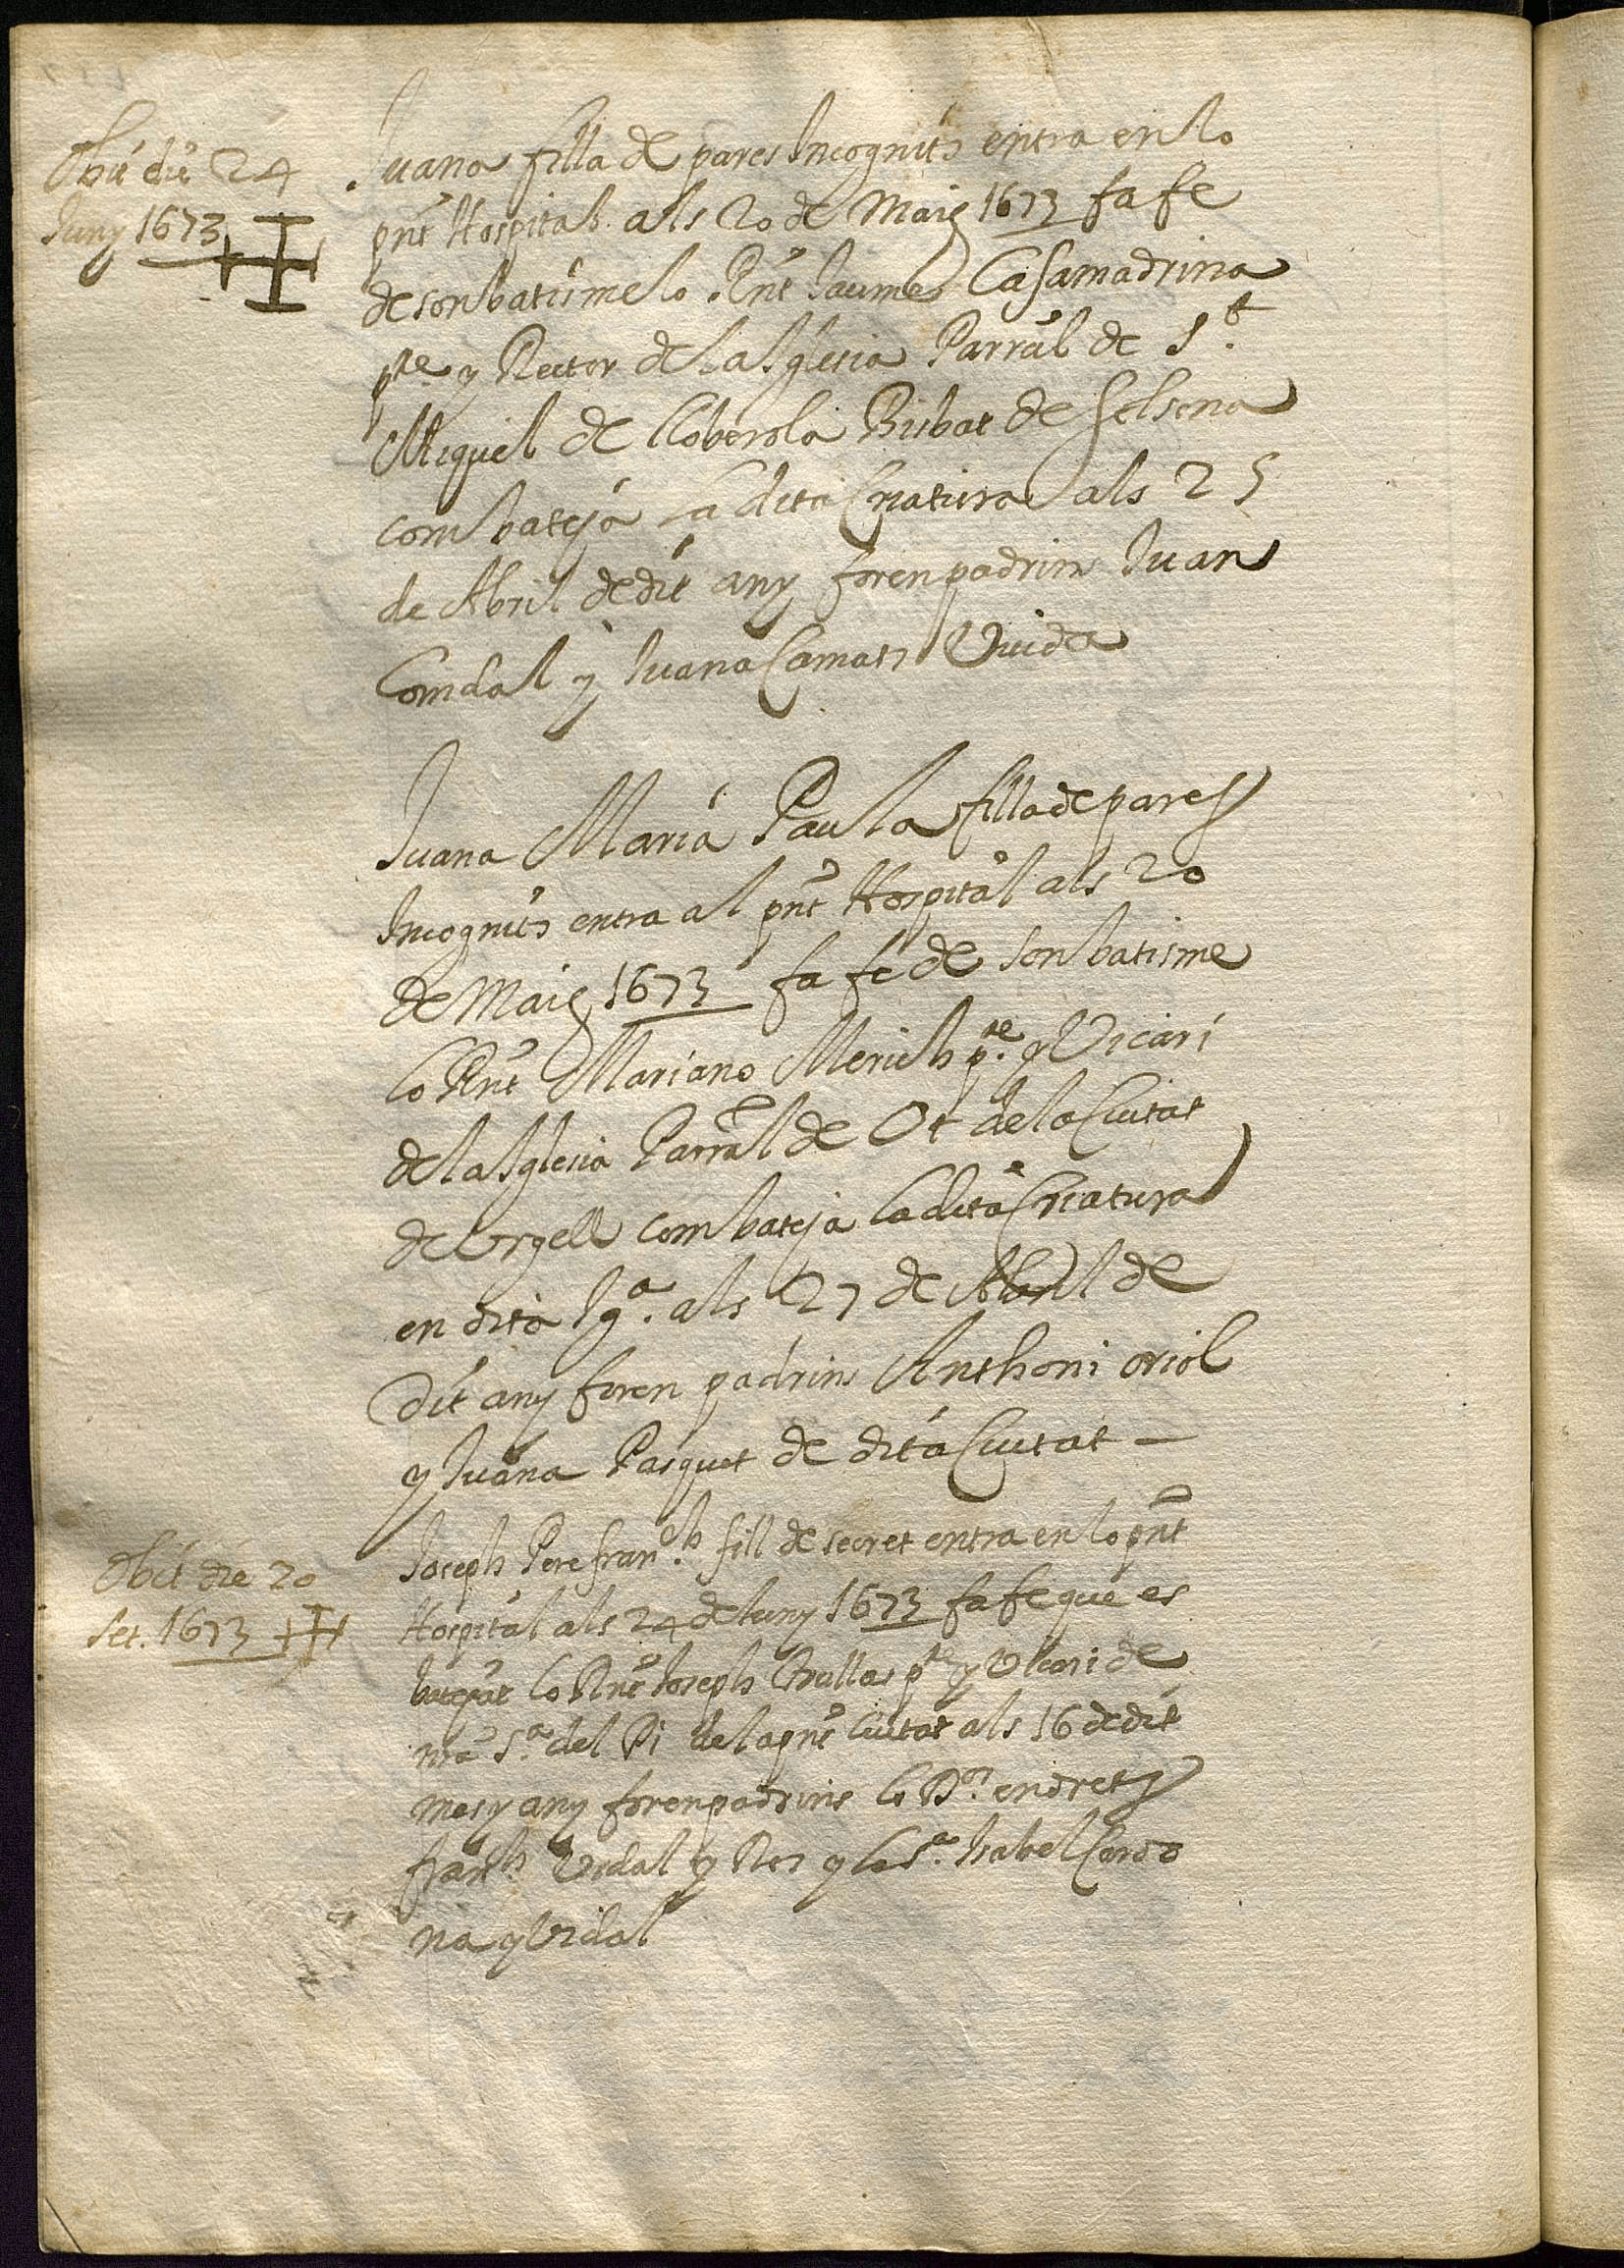 Obiit die 24
Juny 1673
Juana filla de pares Incognits entra en lo
pnt Hospital als 20 de Maig 1673 fa fe
de son batisme lo Rnt Jaume Casamadrina
pre. y Rector de la Iglesia Parral de St.
Miquel de lloberola Bisbat de Solsona
com bateja la dita Criatura als 25
de Abril de dit any foren padrins Juan
Comdal y Juana Camats Viuda
Juana Maria Paula filla de pares
Incognits entra al pnt Hospital als 20
de Maig 1673 fa fe de son batisme
lo Rnt Mariano Merich pre. y Vicari
de la Iglesia Parral de Ot de la Ciutat
de Urgell com bateja la dita Criatura
en dita Iga. als 27 de Abril de
dit any foren padrins Anthoni oriol
y Juana Pasquet de dita Ciutat —
Obiit die 20
Set. 1673
Joseph Pere franch. fill de secret entra en lo pnt
Hospital als 24 de Juny 1673 fa fe que es
batejat lo Rnt Joseph Trullas pre y Vicari de
nra Sa. del Pi de la pnt Ciutat als 16 de dit
mes y any foren padrins lo Dor. en drets
franch. Vidal y Ros y la Sa. Isabel Cardo
na y Vidal